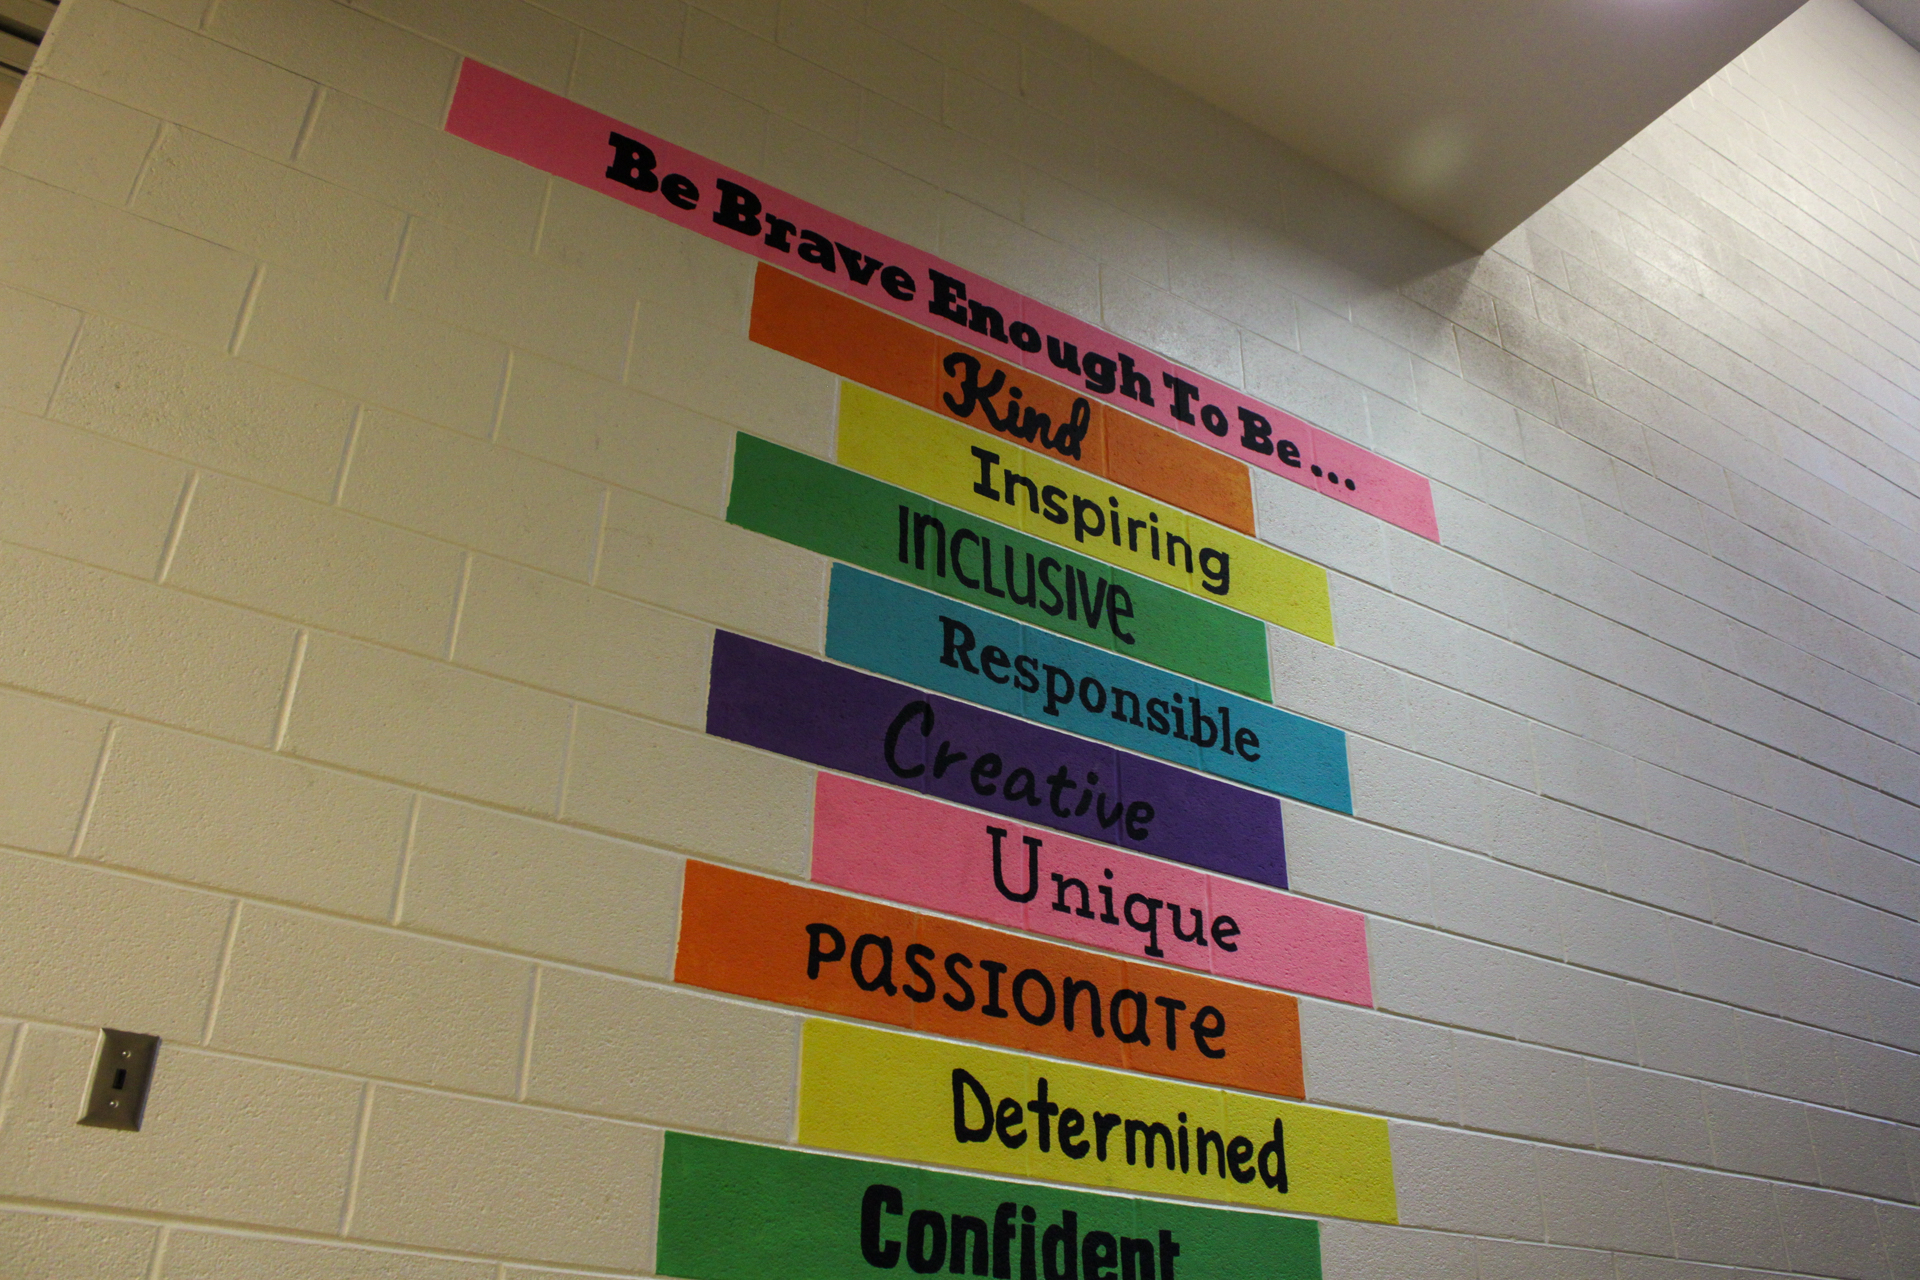 Be Brave Enough To Be...
Kind
Inspiring
INCLUSIVE
Responsible
Creative
Unique
PASSIONATE
Determined
Confident